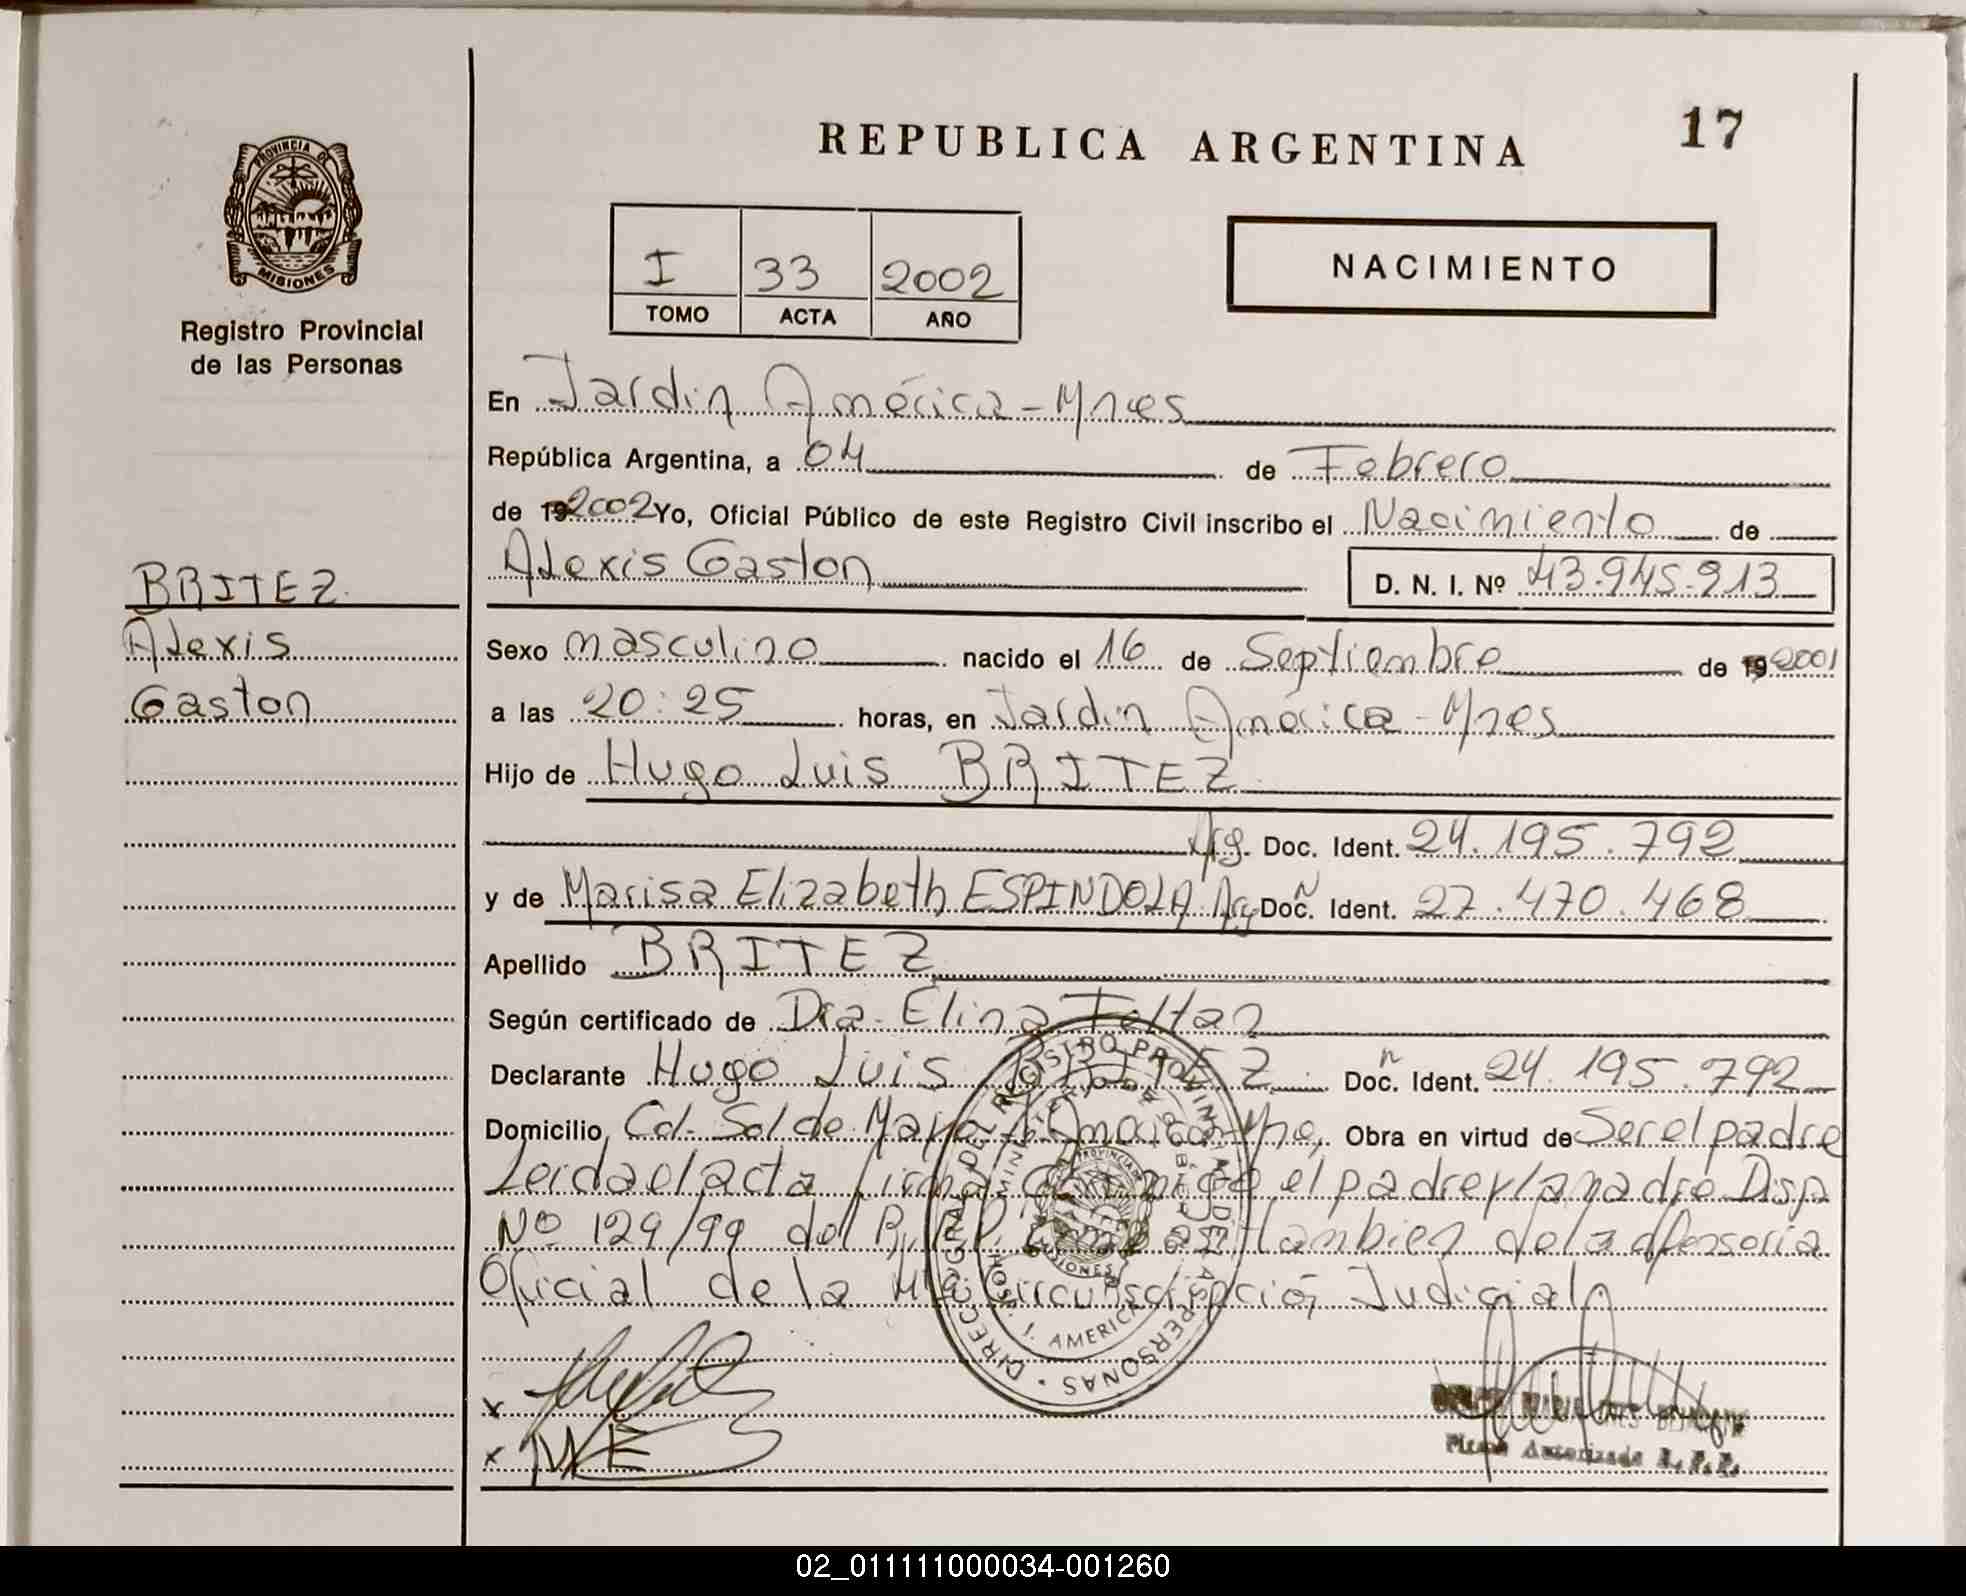 17
REPUBLICA ARGENTINA
PROVINCIA DE
MISIONES
Registro Provincial
de las Personas
I 33 2002
TOMO ACTA AÑO
NACIMIENTO
En Jardin América - Mnes
República Argentina, a 04 de Febrero
de 19 2002 Yo, Oficial Público de este Registro Civil inscribo el Nacimiento de
Alexis Gaston D. N. I. Nº 43.945.913
BRITEZ
Alexis
Gaston
Sexo masculino nacido el 16 de Septiembre de 19 2001
a las 20:25 horas, en Jardin América - Mnes
Hijo de Hugo Luis BRITEZ
Arg. Doc. Ident. 24.195.792
y de Marisa Elizabeth ESPINDOLA Arg Doc. Ident. 27.470.468
Apellido BRITEZ
Según certificado de Dra. Elina Feltan
Declarante Hugo Luis BRITEZ Doc. Ident. 24.195.792
Domicilio, Cd. Sol de Mayo J. América Mne, Obra en virtud de Ser el padre
Leida el acta firma conmigo el padre y la madre Disp
Nº 129/99 del R.P.P. tambien de la defensoria
Oficial de la Circunscripción Judicial
DIRECCION GRAL. DE REGISTRO PROVINCIAL DE LAS PERSONAS
MINISTERIO DE GOBIERNO
PROVINCIA DE
MISIONES
HOSP. J. AMERICA
x
x ME
Firma Autorizada R. P. P.
02_011111000034-001260